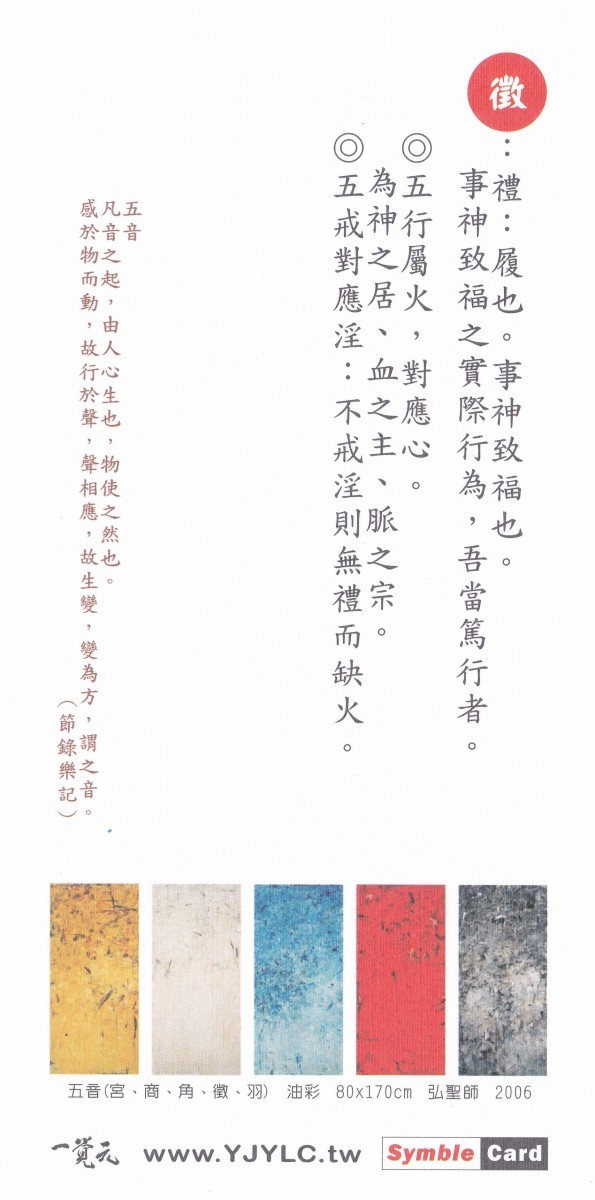 徵
：禮：履也。事神致福也。
事神致福之實際行為，吾當篤行者。
◎五行屬火，對應心。
為神之居、血之主、脈之宗。
◎五戒對應淫：不戒淫則無禮而缺火。
五音
凡音之起，由人心生也，物使之然也。
感於物而動，故行於聲，聲相應，故生變，變為方，謂之音。
（節錄樂記）
五音(宮、商、角、徵、羽) 油彩 80x170cm 弘聖師 2006
一覺元 www.YJYLC.tw Symble Card